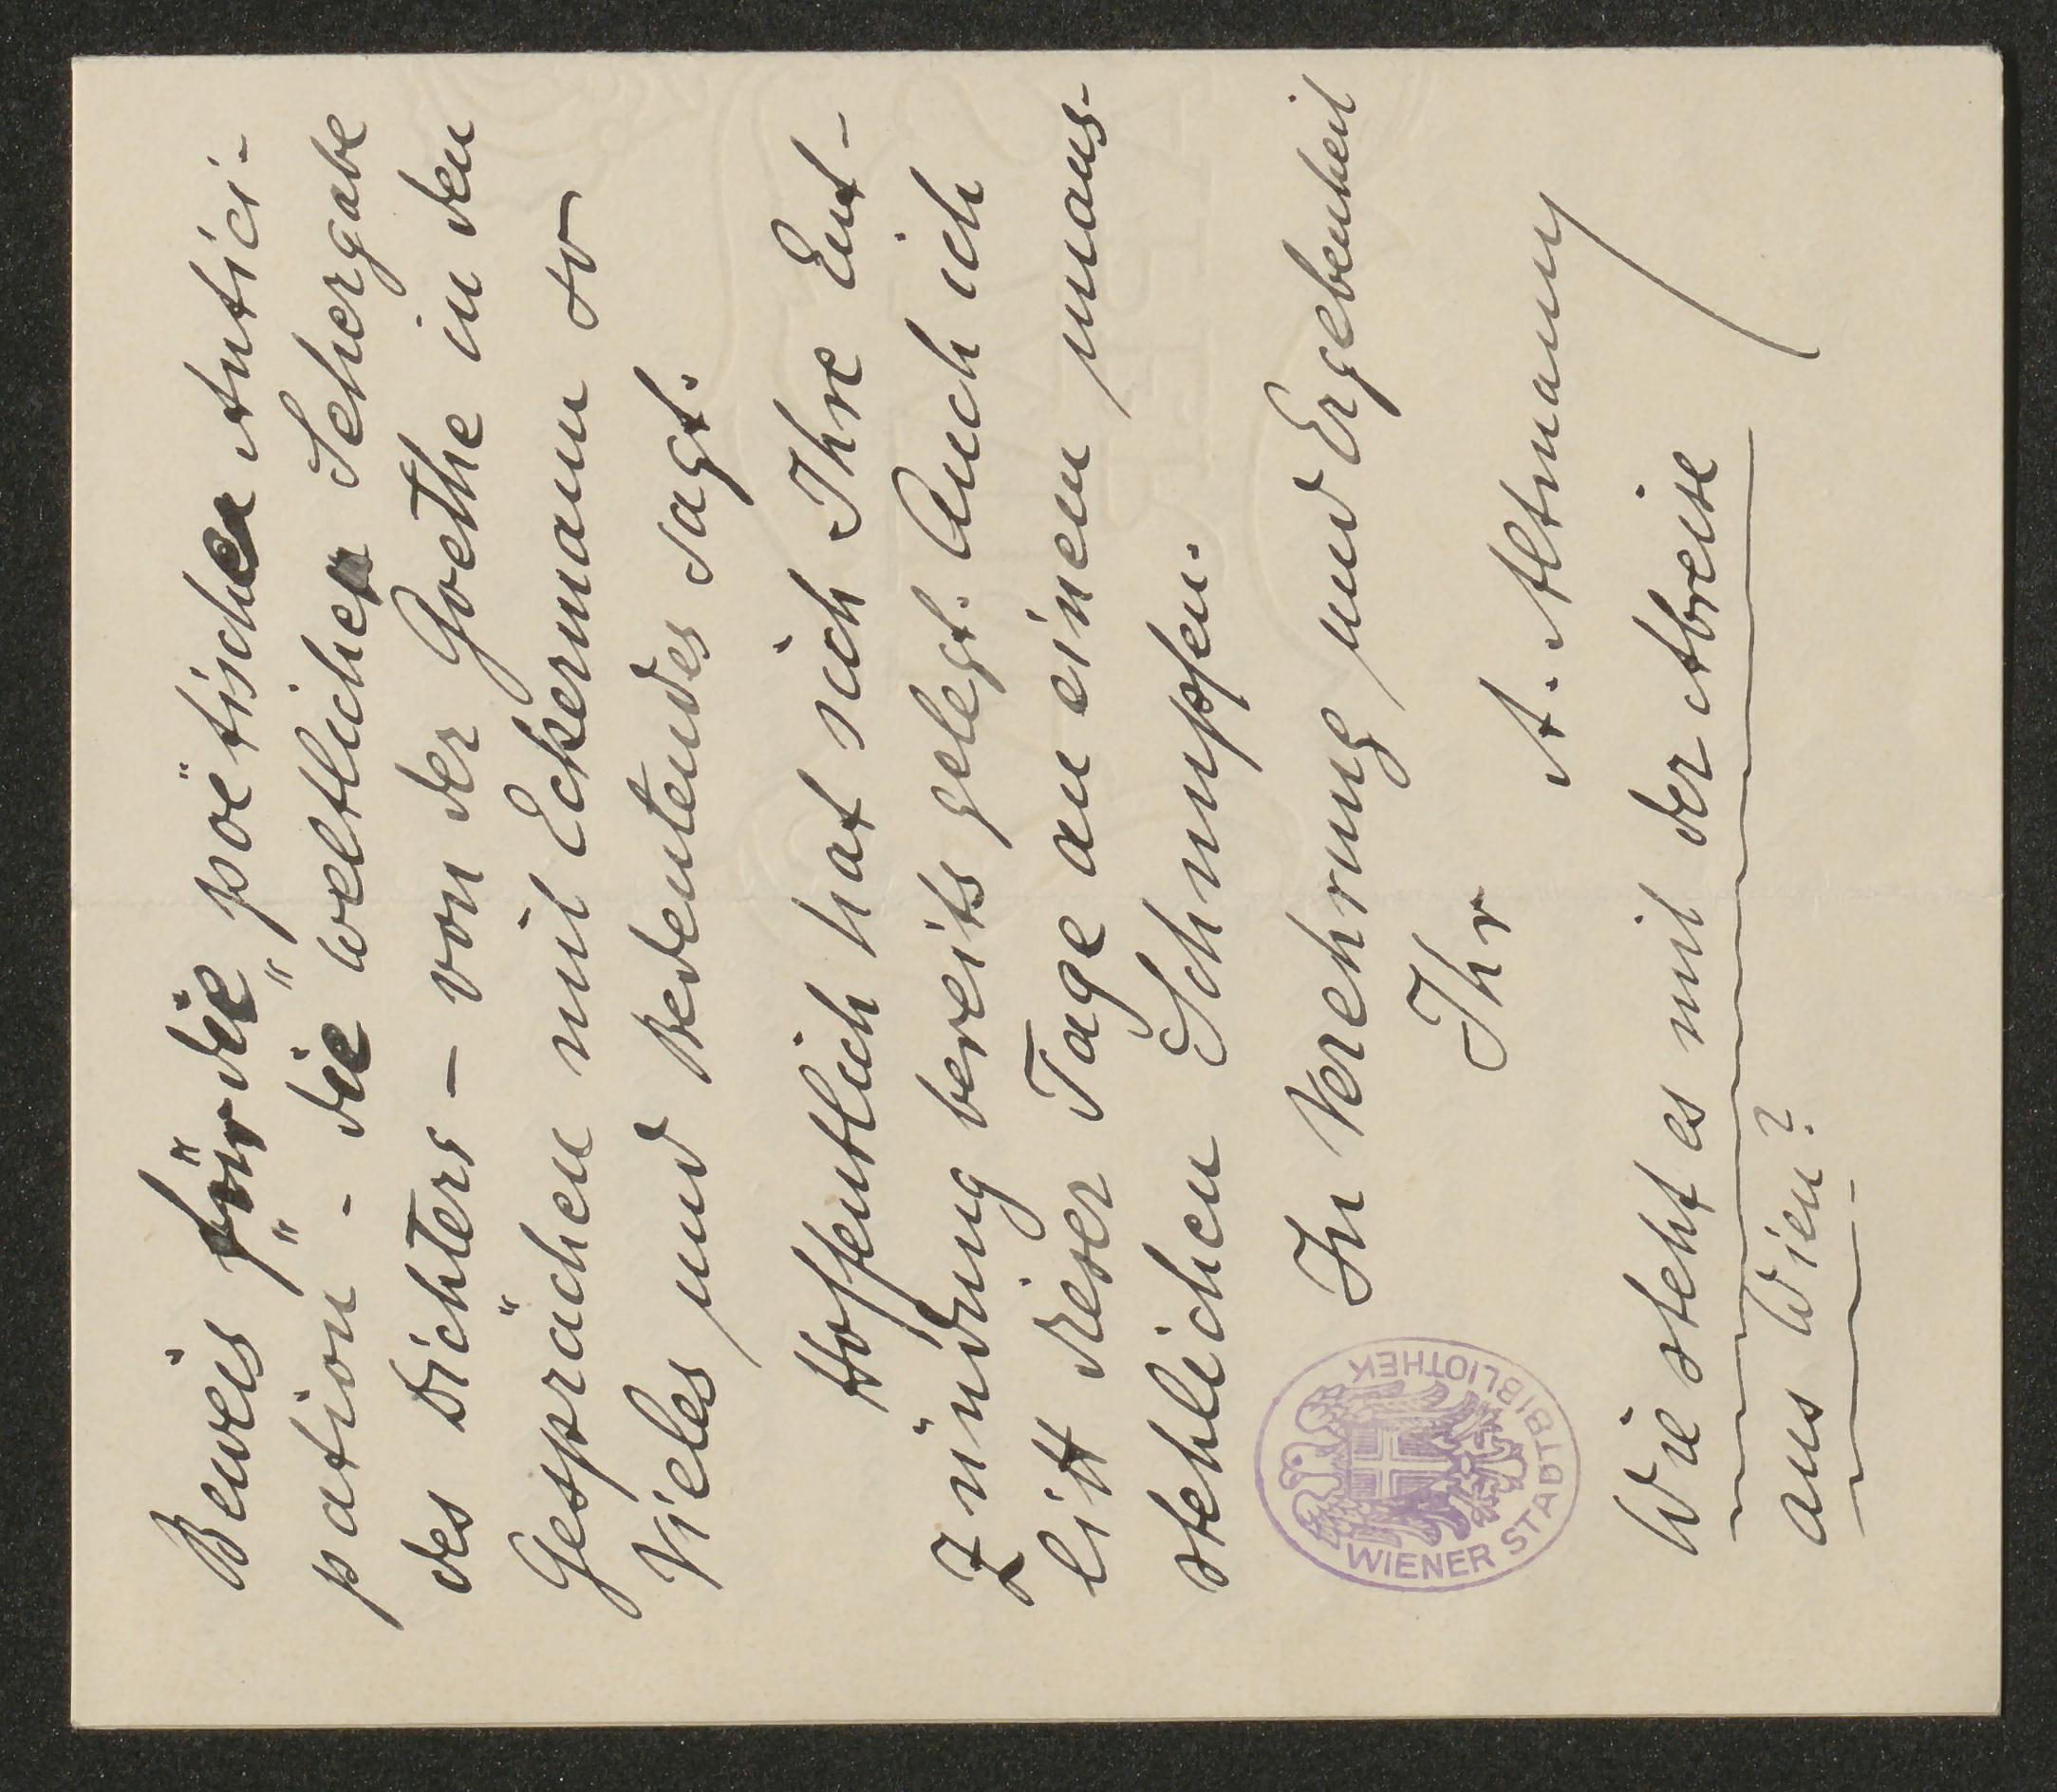 Beweis für die „poëtische Antici-
pation" - die weltliche Sehergabe
des Dichters – von der Goethe in den
Gesprächen mit Eckermann so
Vieles und Bedeutendes sagt.
Hoffentlich hat sich Ihre Ent-
zündung bereits gelegt. Auch ich
litt dieser Tage an einem unaus-
stehlichen Schnupfen.
In Verehrung und Ergebenheit
Ihr A. Altmann
Wie steht es mit der Abreise
aus Wien?
WIENER STADTBIBLIOTHEK